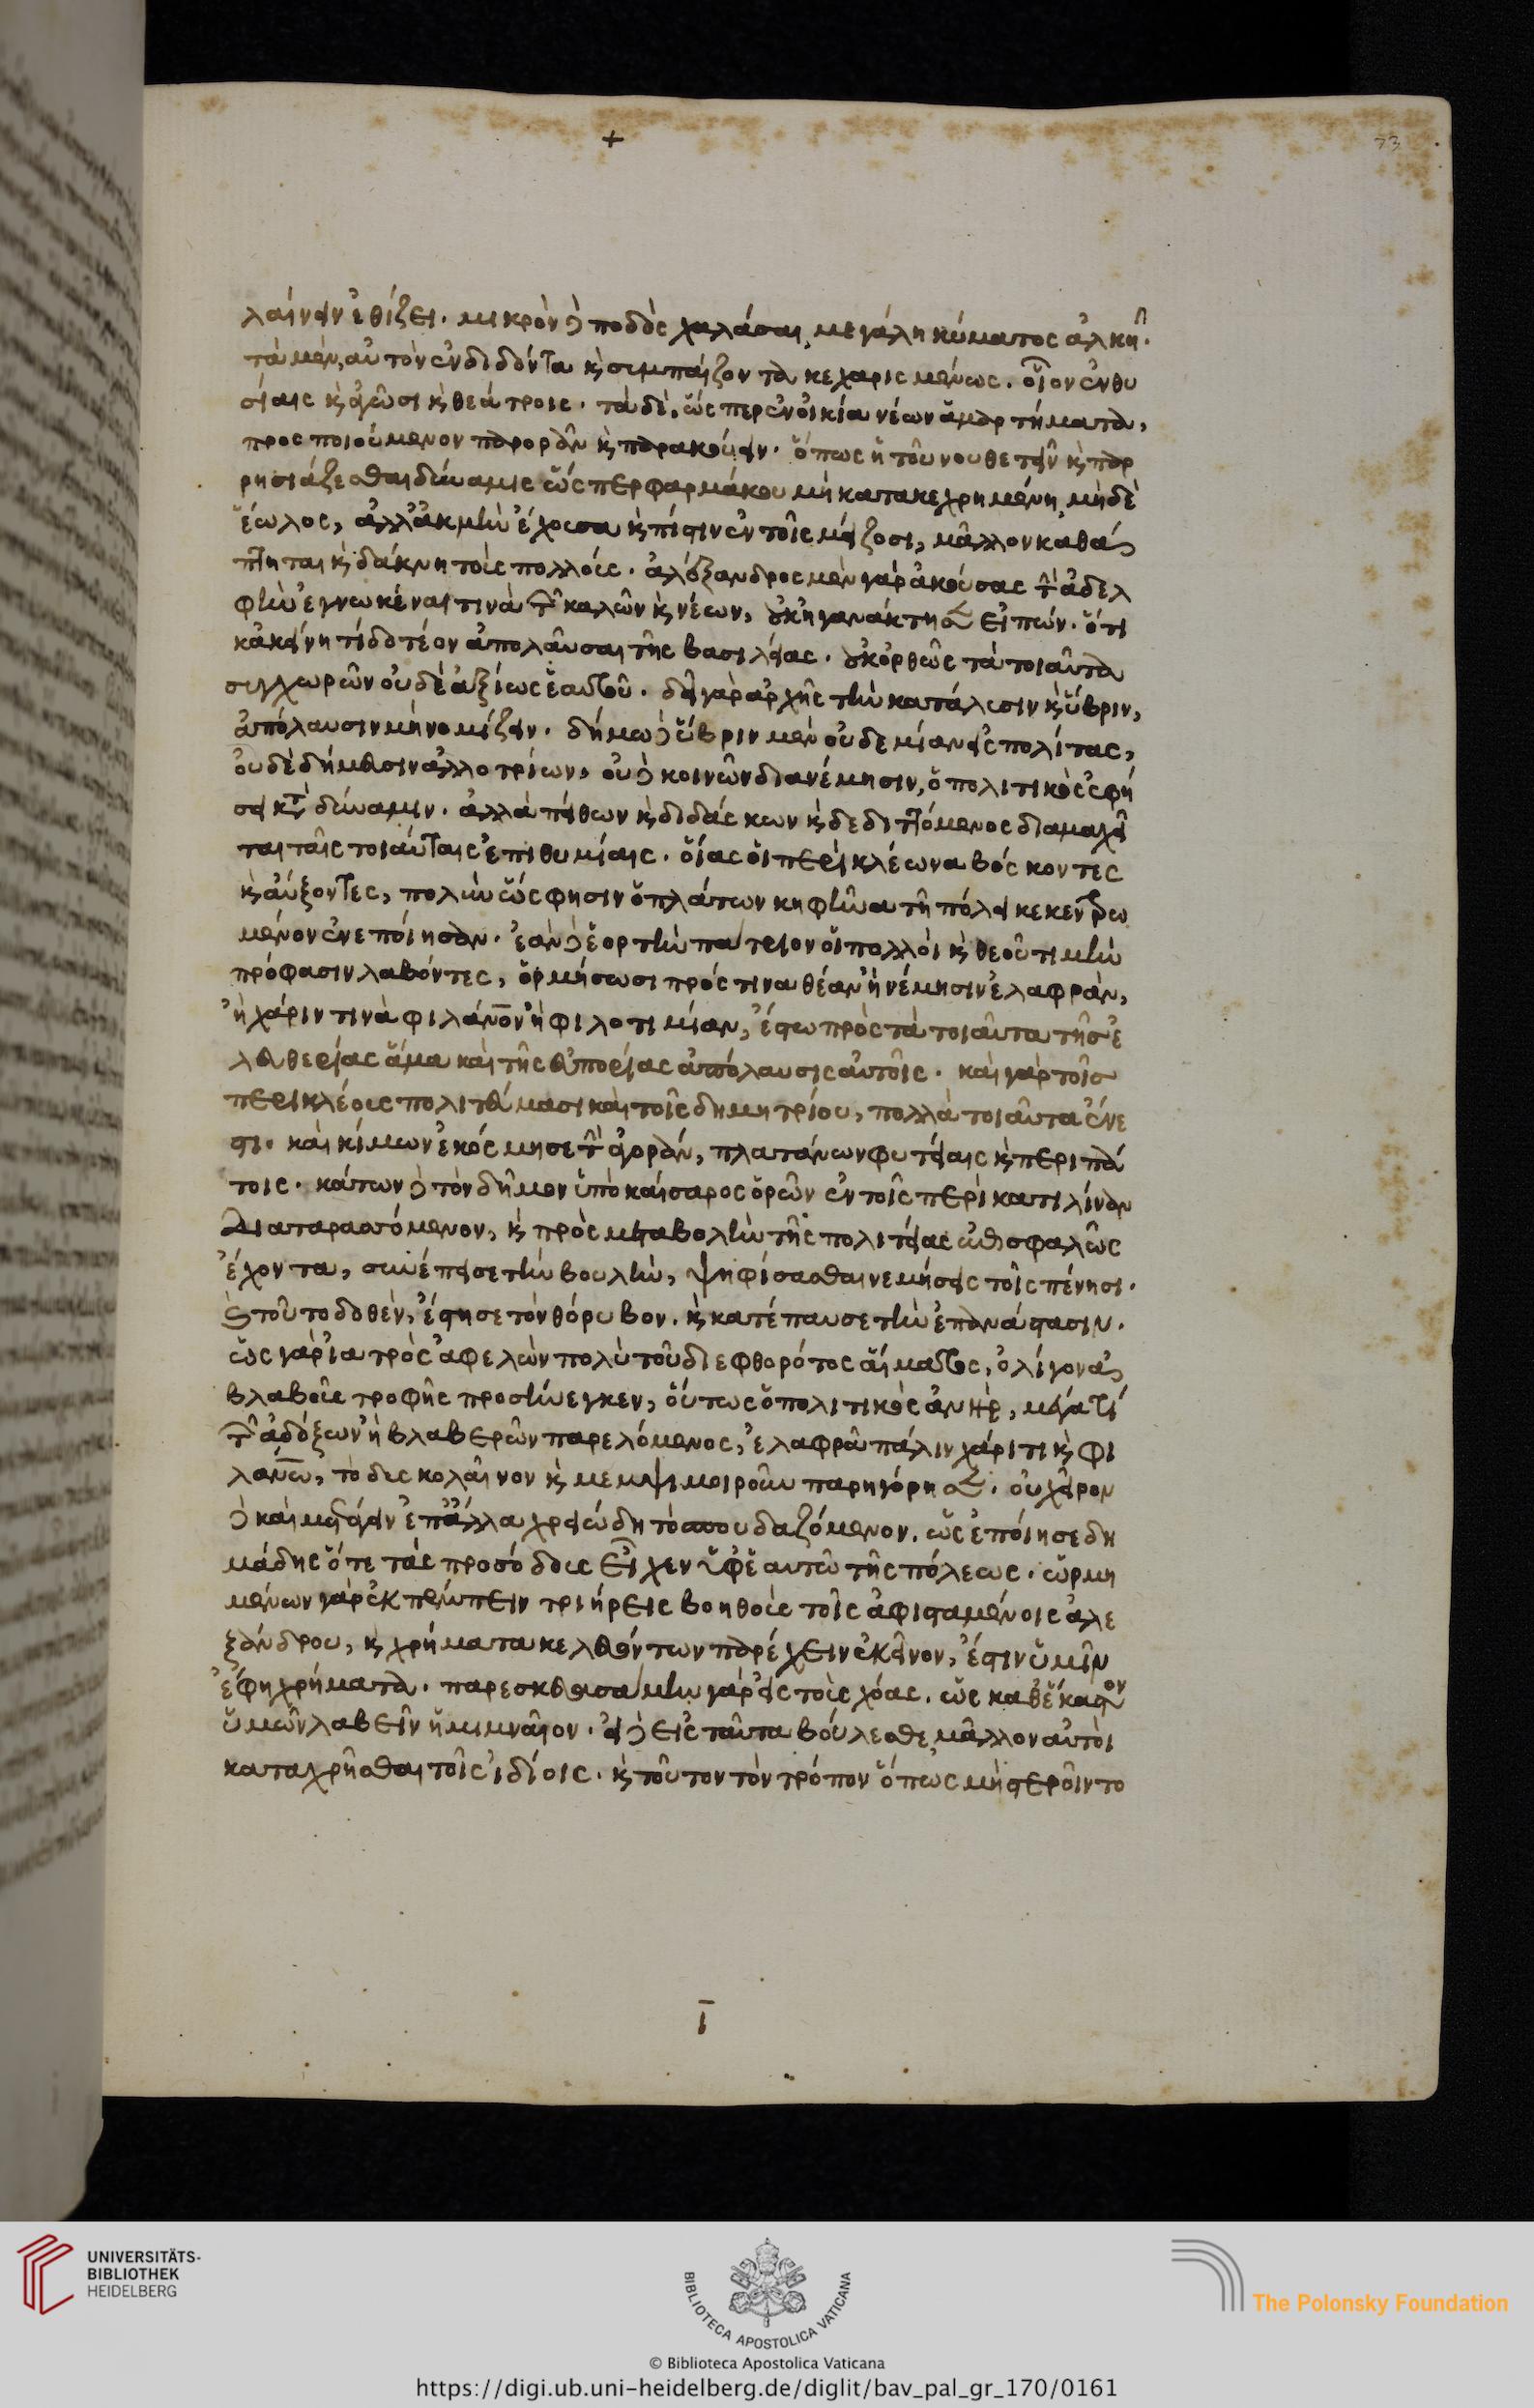 +
73
λαίνειν ἐθίζει. μικρὸν δὲ ποδὸς χαλάσαι, μεγάλη κύματος ἀλκῆ.
τὰ μὲν, αὐτὸν ἐνδιδόντα κὶ συμπαίζοντα κεχαρισμένως. οἷον ἐνθυ
σίαις κὶ ἀγῶσι κὶ θεάτροις. τὰ δὲ, ὥςπερ ἐν οἰκία νέων ἁμαρτήματα,
προςποιούμενον παρορᾶν κὶ παρακούειν. ὅπως ἡ τοῦ νουθετεῖν κὶ παρ
ρησιάζεσθαι δύναμις ὥςπερ φαρμάκου μὴ κατακεχρημένη, μηδὲ
ἕωλος, ἀλλ' ἀκμὴν ἔχουσα κὶ πίστιν ἐν τοῖς μείζοσι, μᾶλλον καθάς
πτηται κὶ δάκνη τοὺς πολλούς. ἀλέξανδρος μὲν γὰρ ἀκούσας τὴν ἀδελ
φὴν ἐγνωκέναι τινὰ τῶν καλῶν κὶ νέων, οὐκ ἠγανάκτησεν εἰπών. ὅτι
κἀκείνη τί δοτέον ἀπολαῦσαι τῆς βασιλείας. οὐκ ὀρθῶς τὰ τοιαῦτα
συγχωρῶν οὐδὲ ἀξίως ἑαυτοῦ. δεῖ γὰρ ἀρχῆς τὴν κατάλυσιν κὶ ὕβριν,
ἀπόλαυσιν μὴ νομίζειν. δήμω δὲ ὕβριν μὲν οὐδεμίαν εἰς πολίτας,
οὐδὲ δήμευσιν ἀλλοτρίων, οὐδὲ κοινῶν διανέμησιν, ὁ πολιτικὸς ἐφή
σει κατὰ δύναμιν. ἀλλὰ πείθων κὶ διδάςκων κὶ δεδιττόμενος διαμαχεῖ
ται ταῖς τοιαύταις ἐπιθυμίαις. οἵας οἱ περὶ κλέωνα βόςκοντες
κὶ αὔξοντες, πολὺν ὥς φησιν ὁ πλάτων κηφῆνα τῆ πόλει κεκεντρω
μένον ἐνεποίησαν. ἐὰν δὲ ἑορτὴν πάτριον οἱ πολλοὶ κὶ θεοῦ τιμὴν
πρόφασιν λαβόντες, ὁρμήσωσι πρός τινα θέαν ἢ νέμησιν ἐλαφρὰν,
ἢ χάριν τινὰ φιλάνον ἢ φιλοτιμίαν, ἔστω πρὸς τὰ τοιαῦτα τῆς ἐ
λευθερίας ἅμα καὶ τῆς εὐπορίας ἀπόλαυσις αὐτοῖς. καὶ γὰρ τοῖς
περικλέους πολιτεύμασι καὶ τοῖς δημητρίου, πολλὰ τοιαῦτα ἔνε
στι. καὶ κίμων ἐκόςμησε τὴν ἀγορὰν, πλατάνων φυτείαις κὶ περιπά
τοις. κάτων δὲ τὸν δῆμον ὑπὸ καίσαρος ὁρῶν ἐν τοῖς περὶ κατιλίναν
διαταρασσόμενον, κὶ πρὸς μεταβολὴν τῆς πολιτείας ἐπισφαλῶς
ἔχοντα, συνέπεισε τὴν βουλὴν, ψηφίσασθαι νεμήσεις τοῖς πένησι.
κὶ τοῦτο δοθὲν, ἔστησε τὸν θόρυβον. κὶ κατέπαυσε τὴν ἐπανάστασιν.
ὡς γὰρ ἰατρὸς ἀφελὼν πολὺ τοῦ διεφθορότος αἵματος, ὀλίγον ἀς
βλαβοῦς τροφῆς προσήνεγκεν, οὕτως ὁ πολιτικὸς ἀνὴρ, μέγα τί
τῶν ἀδόξων ἢ βλαβερῶν παρελόμενος, ἐλαφρᾶ πάλιν χάριτι κὶ φι
λανω, τὸ δυςκολαῖνον κὶ μεμψιμοιροῦν παρηγόρησεν. οὐ χεῖρον
δὲ καὶ μετάγειν ἐπ' ἄλλα χρειώδη τὸ σπουδαζόμενον. ὡς ἐποίησε δη
μάδης ὅτε τὰς προσόδους εἶχεν ὑφ' ἑαυτῶ τῆς πόλεως. ὡρμη
μένων γὰρ ἐκπέμπειν τριήρεις βοηθοὺς τοῖς ἀφισταμένοις ἀλε
ξάνδρου, κὶ χρήματα κελευόντων παρέχειν ἐκεῖνον, ἔστιν ὑμῖν
ἔφη χρήματα. παρεσκευασάμην γὰρ εἰς τοὺς χόας. ὥς καθ' ἕκαστον
ὑμῶν λαβεῖν ἡμιμναῖον. εἰ δὲ εἰς ταῦτα βούλεσθε, μᾶλλον αὐτοὶ
καταχρῆσθαι τοῖς ἰδίοις. κὶ τοῦτον τὸν τρόπον ὅπως μὴ στεροῖντο
ι
UNIVERSITÄTS-
BIBLIOTHEK
HEIDELBERG
BIBLIOTECA APOSTOLICA VATICANA
The Polonsky Foundation
© Biblioteca Apostolica Vaticana
https://digi.ub.uni-heidelberg.de/diglit/bav_pal_gr_170/0161